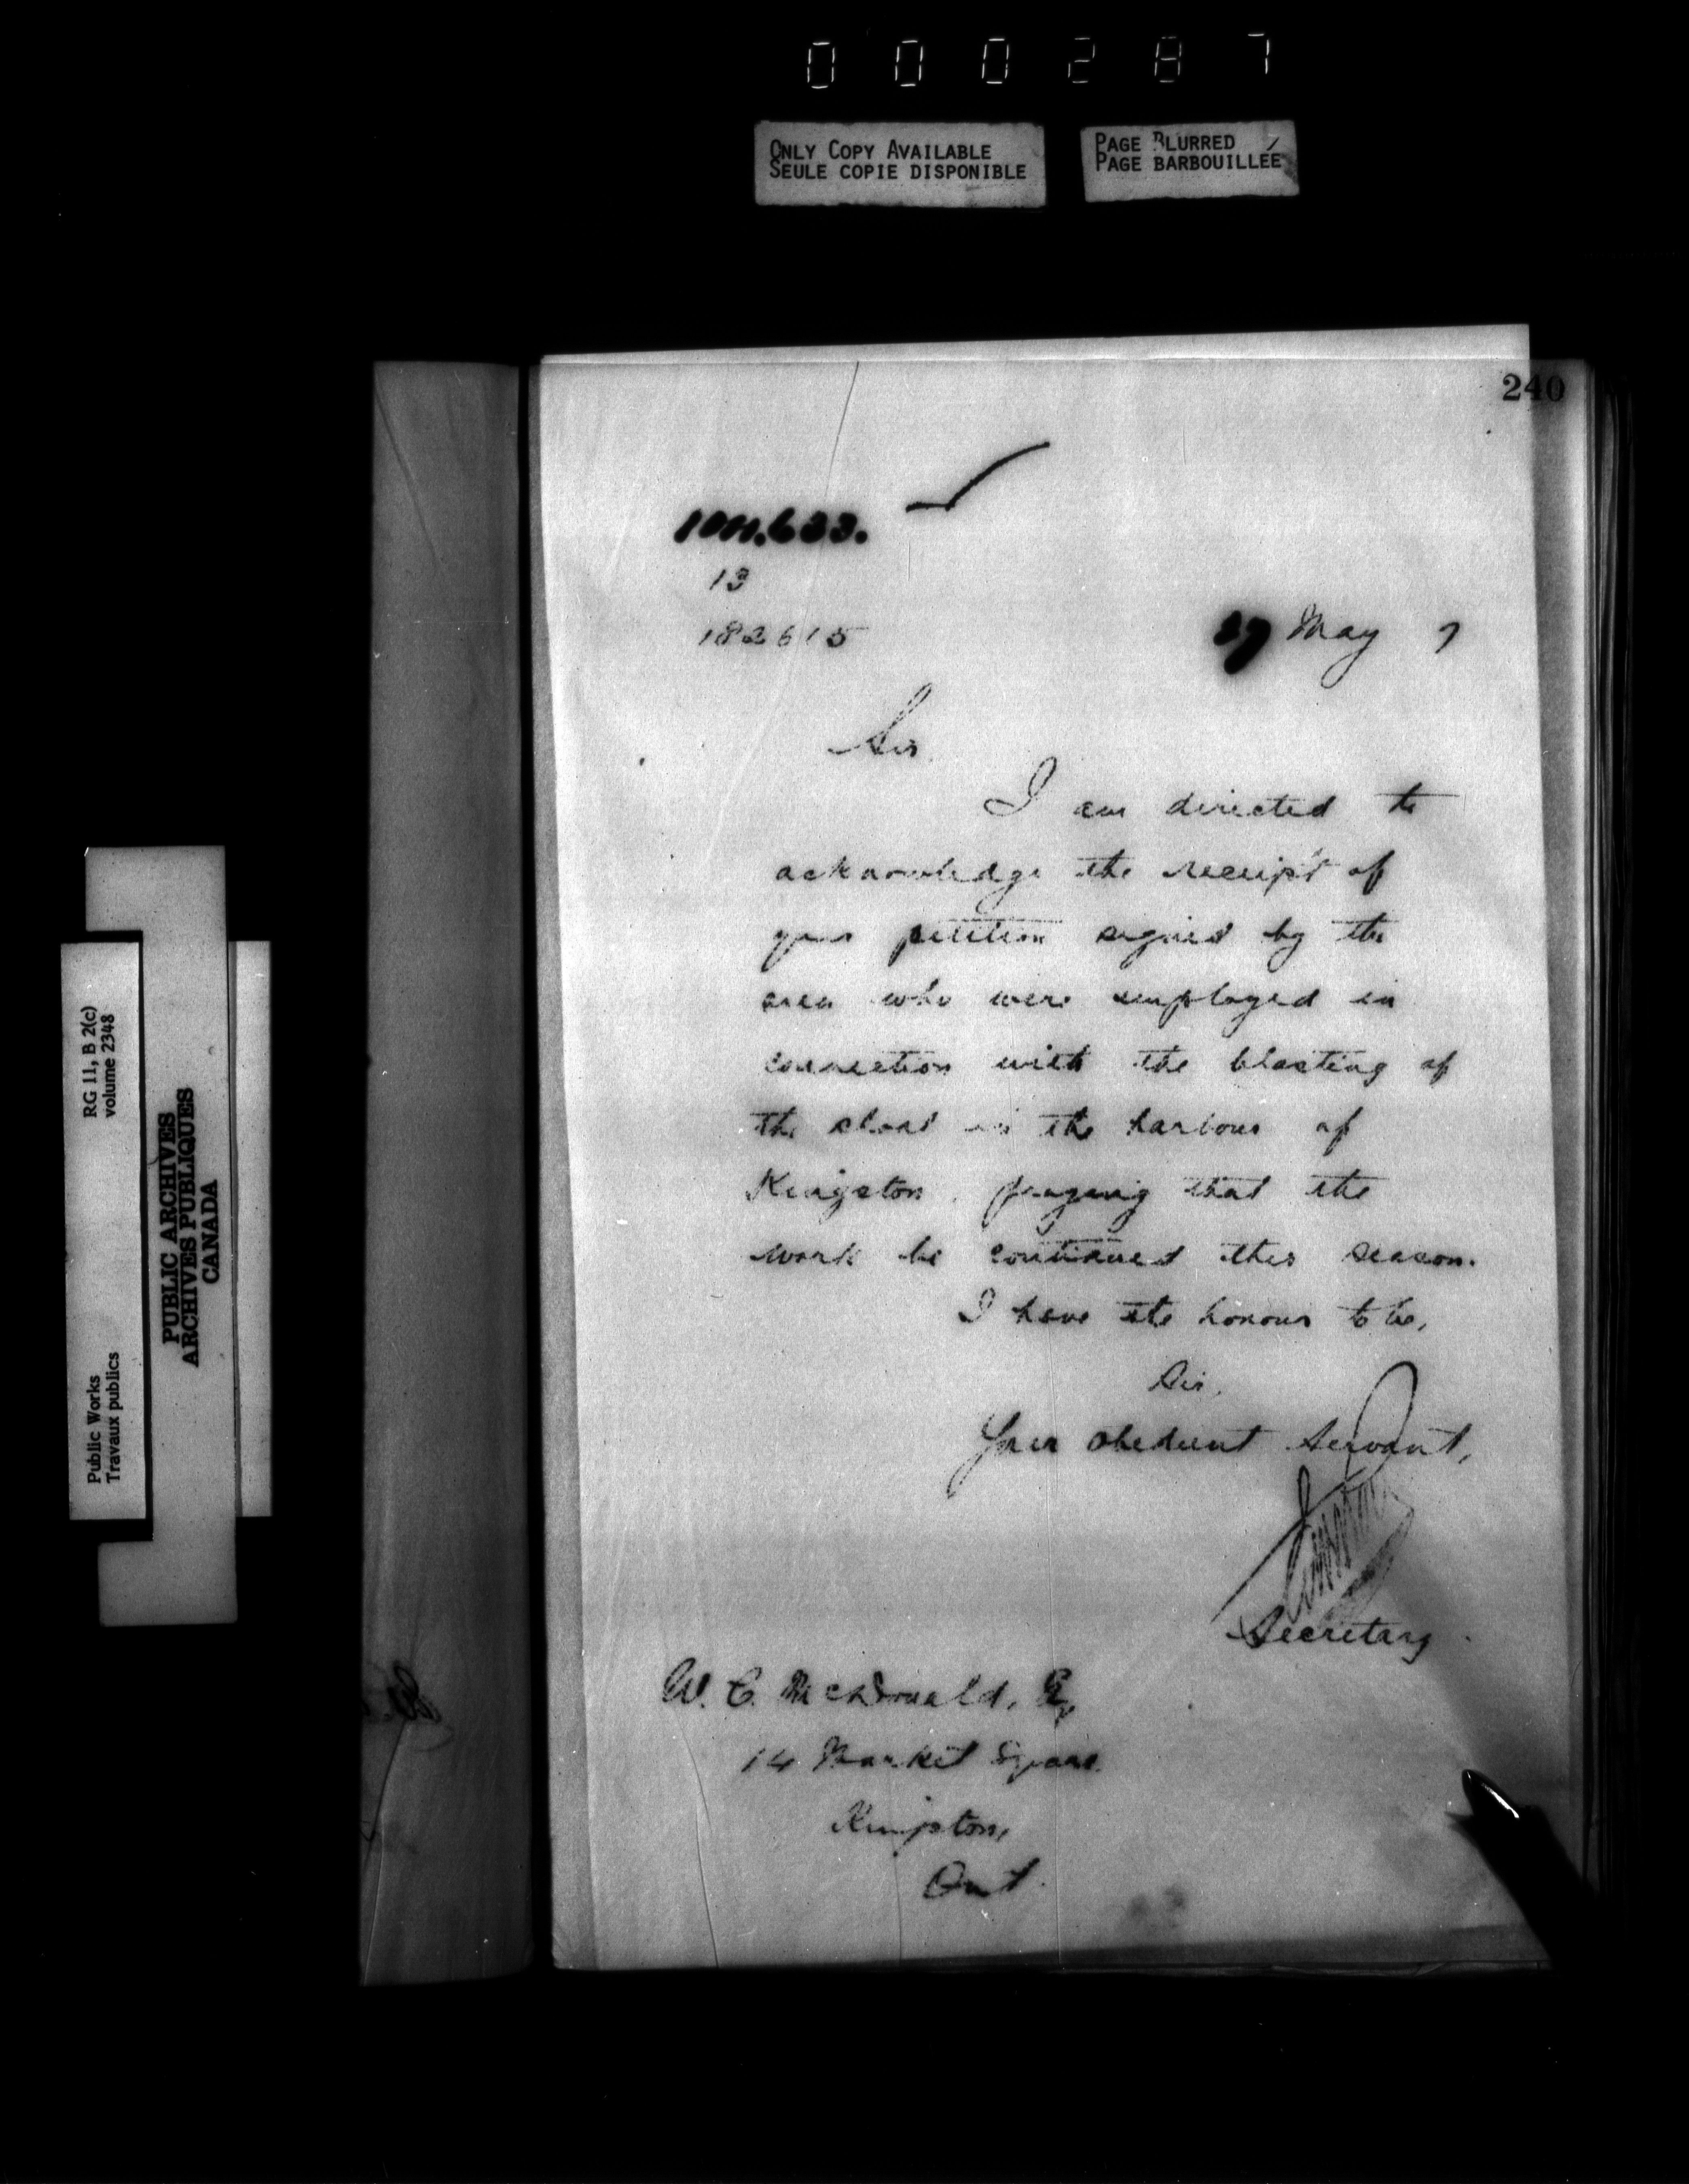 000287
ONLY COPY AVAILABLE
SEULE COPIE DISPONIBLE
PAGE BLURRED
PAGE BARBOUILLÉE
240
13
182615
27 May 7
Sir,
I am directed to
acknowledge the receipt of
your petition signed by the
men who were employed in
connection with the blasting of
the shoal in the harbour of
Kingston, praying that the
work be continued this season.
I have the honour to be,
Sir,
Your obedient servant,
Secretary
W. C. McDonald, Esq
14 Market Square
Kingston,
Ont.
RG 11, B 2(c)
volume 2348
Public Works
Travaux publics
PUBLIC ARCHIVES
ARCHIVES PUBLIQUES
CANADA